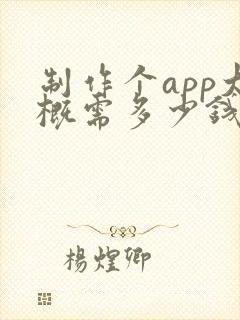 制作个app大
概需多少钱
杨煌卿